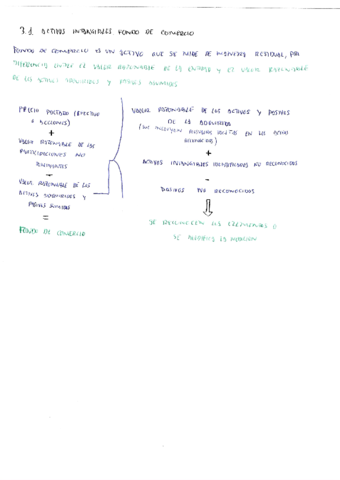 3.1 ACTIVOS INTANGIBLES FONDO DE COMERCIO
FONDO DE COMERCIO ES UN ACTIVO QUE SE MIDE DE MANERA RESIDUAL, POR
DIFERENCIA ENTRE EL VALOR RAZONABLE DE LA EMPRESA Y EL VALOR RAZONABLE
DE LOS ACTIVOS ADQUIRIDOS Y PASIVOS ASUMIDOS
PRECIO PAGADO (EFECTIVO
O ACCIONES)
+
VALOR RAZONABLE DE LAS
PARTICIPACIONES NO
DOMINANTES
-
VALOR RAZONABLE DE LOS
ACTIVOS ADQUIRIDOS Y
PASIVOS ASUMIDOS
=
FONDO DE COMERCIO
VALOR RAZONABLE DE LOS ACTIVOS Y PASIVOS
DE LA ADQUIRIDA
+
ACTIVOS INTANGIBLES IDENTIFICADOS NO RECONOCIDOS
-
PASIVOS NO RECONOCIDOS
SE
SE LA